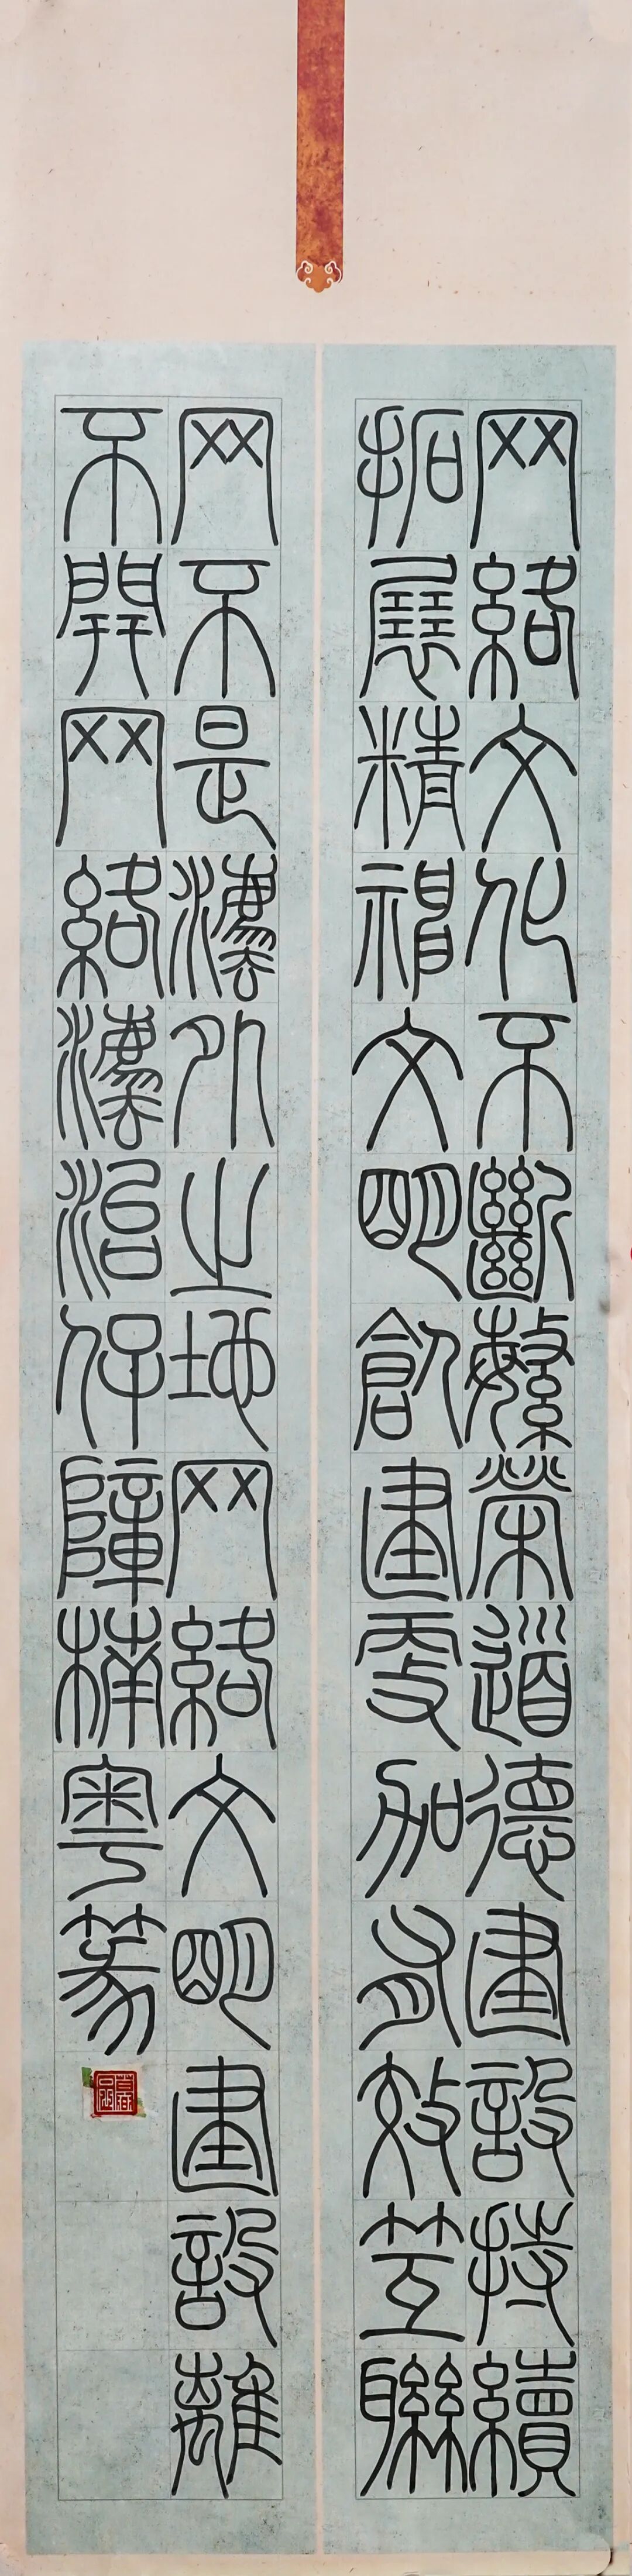 网絡文化不斷繁榮道德建設持續
拓展精神文明創建更加有效互聯
网不是灋外之地网絡文明建設離
不開网絡灋治保障楠粤篆